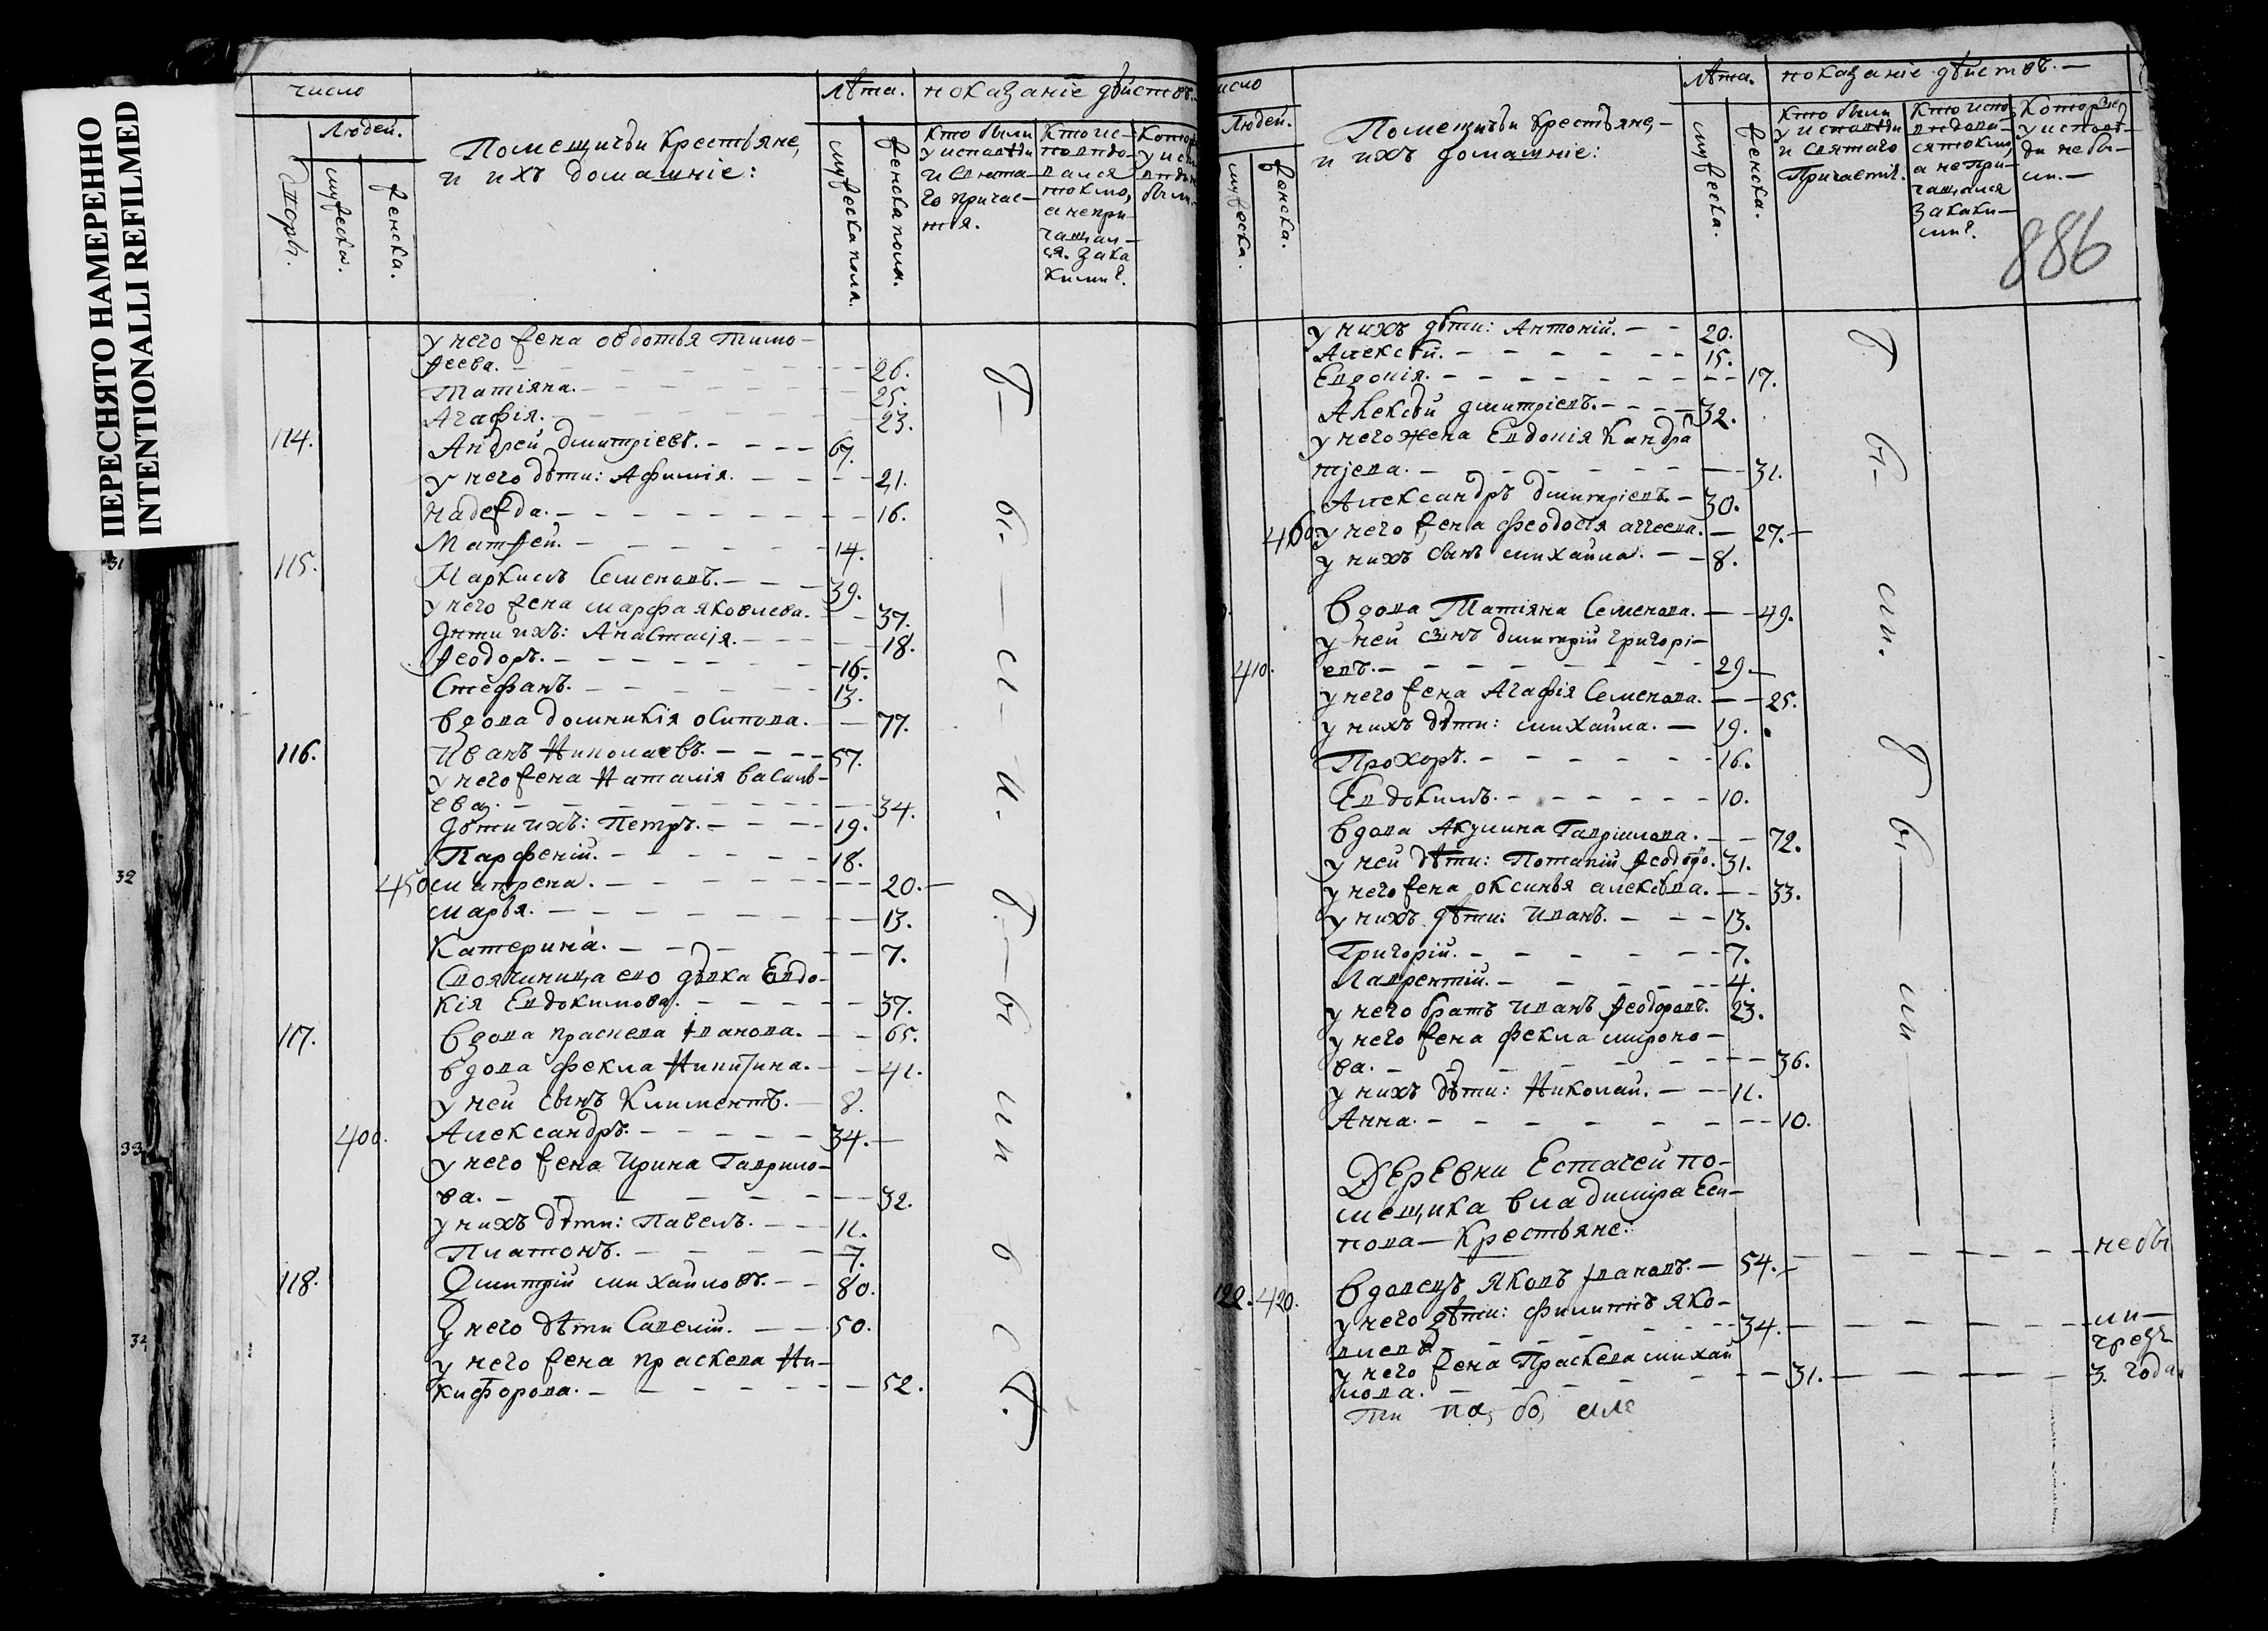 ПЕРЕСНЯТО НАМЕРЕННО
INTENTIONALLI REFILMED
число
Людей.
Дворы.
мужеска.
женска.
Помещичьи Крестьяне,
и ихъ домашніе:
лѣта.
мужеска пола.
женска пола.
показаніе дѣйствъ.
Кто были
у исповѣди
и свята-
го причас-
тія.
Кто ис-
повѣдо-
вался
токмо,
а непри-
чащал-
ся. Зака
кимъ?
Котор
у исп
были
у него жена овдотья тимо-
ѳеева. 26.
Татіяна. 25.
Агафія. 23.
114. Андрей Дмитріевъ. 67.
у него дѣти: Афимія. 21.
надежда. 16.
Матѳей. 14.
115. Маркилъ Семеновъ. 39.
у него жена марфа яковлева. 37.
дѣти ихъ: Анастасія. 18.
ѳеодоръ. 16.
Стефанъ. 13.
вдова домникія осипова. 77.
116. Иванъ Николаевъ. 57.
у него жена Наталія василь-
ева. 34.
дѣти ихъ: Петръ. 19.
Парфеній. 18.
450 матрена. 20.
марья. 13.
Катерина. 7.
Своячиница ево дѣвка Евдо-
кія Евдокимова. 37.
117. вдова праскева іванова. 65.
вдова фекла Никитина. 41.
у ней сынъ Климентъ. 8.
400. Александръ. 34.
у него жена Ирина Гаврило-
ва. 32.
у нихъ дѣти: Павелъ. 11.
Платонъ. 7.
118. Дмитрій михайловъ. 80.
у него дѣти Савелій. 50.
у него жена праскева Ни-
кифорова. 52.
число
Людей.
мужеска.
женска.
Помещичьи Крестьяне,
и ихъ домашніе:
лѣта.
мужеска.
женска.
показаніе дѣйствъ.
Кто были
у исповѣди
и святаго
Причастія.
Кто испо-
вѣдова-
ся токмо,
а непри-
чащался
за каки-
ми?
Которые
у исповѣ-
ди небы-
ли.
886
у нихъ дѣти: Антоній. 20.
Алексѣй. 15.
Евдокія. 17.
Алексѣй дмитріевъ. 32.
у него жена Евдокія Кандра
тјева. 31.
Александръ дмитріевъ. 30.
460. у него жена феодосія агѓеева. 27.
у нихъ сынъ михайла. 8.
вдова Татіяна Семенова. 49.
у ней сынъ дмитрій григорі-
410. евъ. 29.
у него жена Агафія Семенова. 25.
у нихъ дѣти: михайла. 19.
Прохоръ. 16.
Евдокимъ. 10.
вдова Акулина Гаврилова. 72.
у ней дѣти: Потапій ѳеодоро. 31.
у него жена оксинья алексѣва. 33.
у нихъ дѣти: Иванъ. 13.
Григорій. 7.
Лаврентій. 4.
у него братъ Иванъ ѳеодоровъ. 23.
у него жена фекла мироно-
ва. 36.
у нихъ дѣти: Николай. 11.
Анна. 10.
Деревни Естачей по-
мещика владимира Еси-
пова Крестьяне:
120. 420. вдовецъ яковъ івановъ. 54. небы
у него дѣти: филиппъ яко-
влевъ 34. ли
чрезъ
у него жена Праскева михай
лова. 31. 3. года.